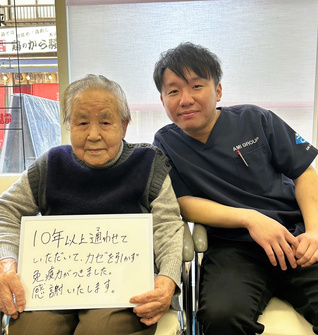 10年以上通わせて
いただいて、カゼを引かず
免疫力がつきました。
感謝いたします。
AMI GROUP